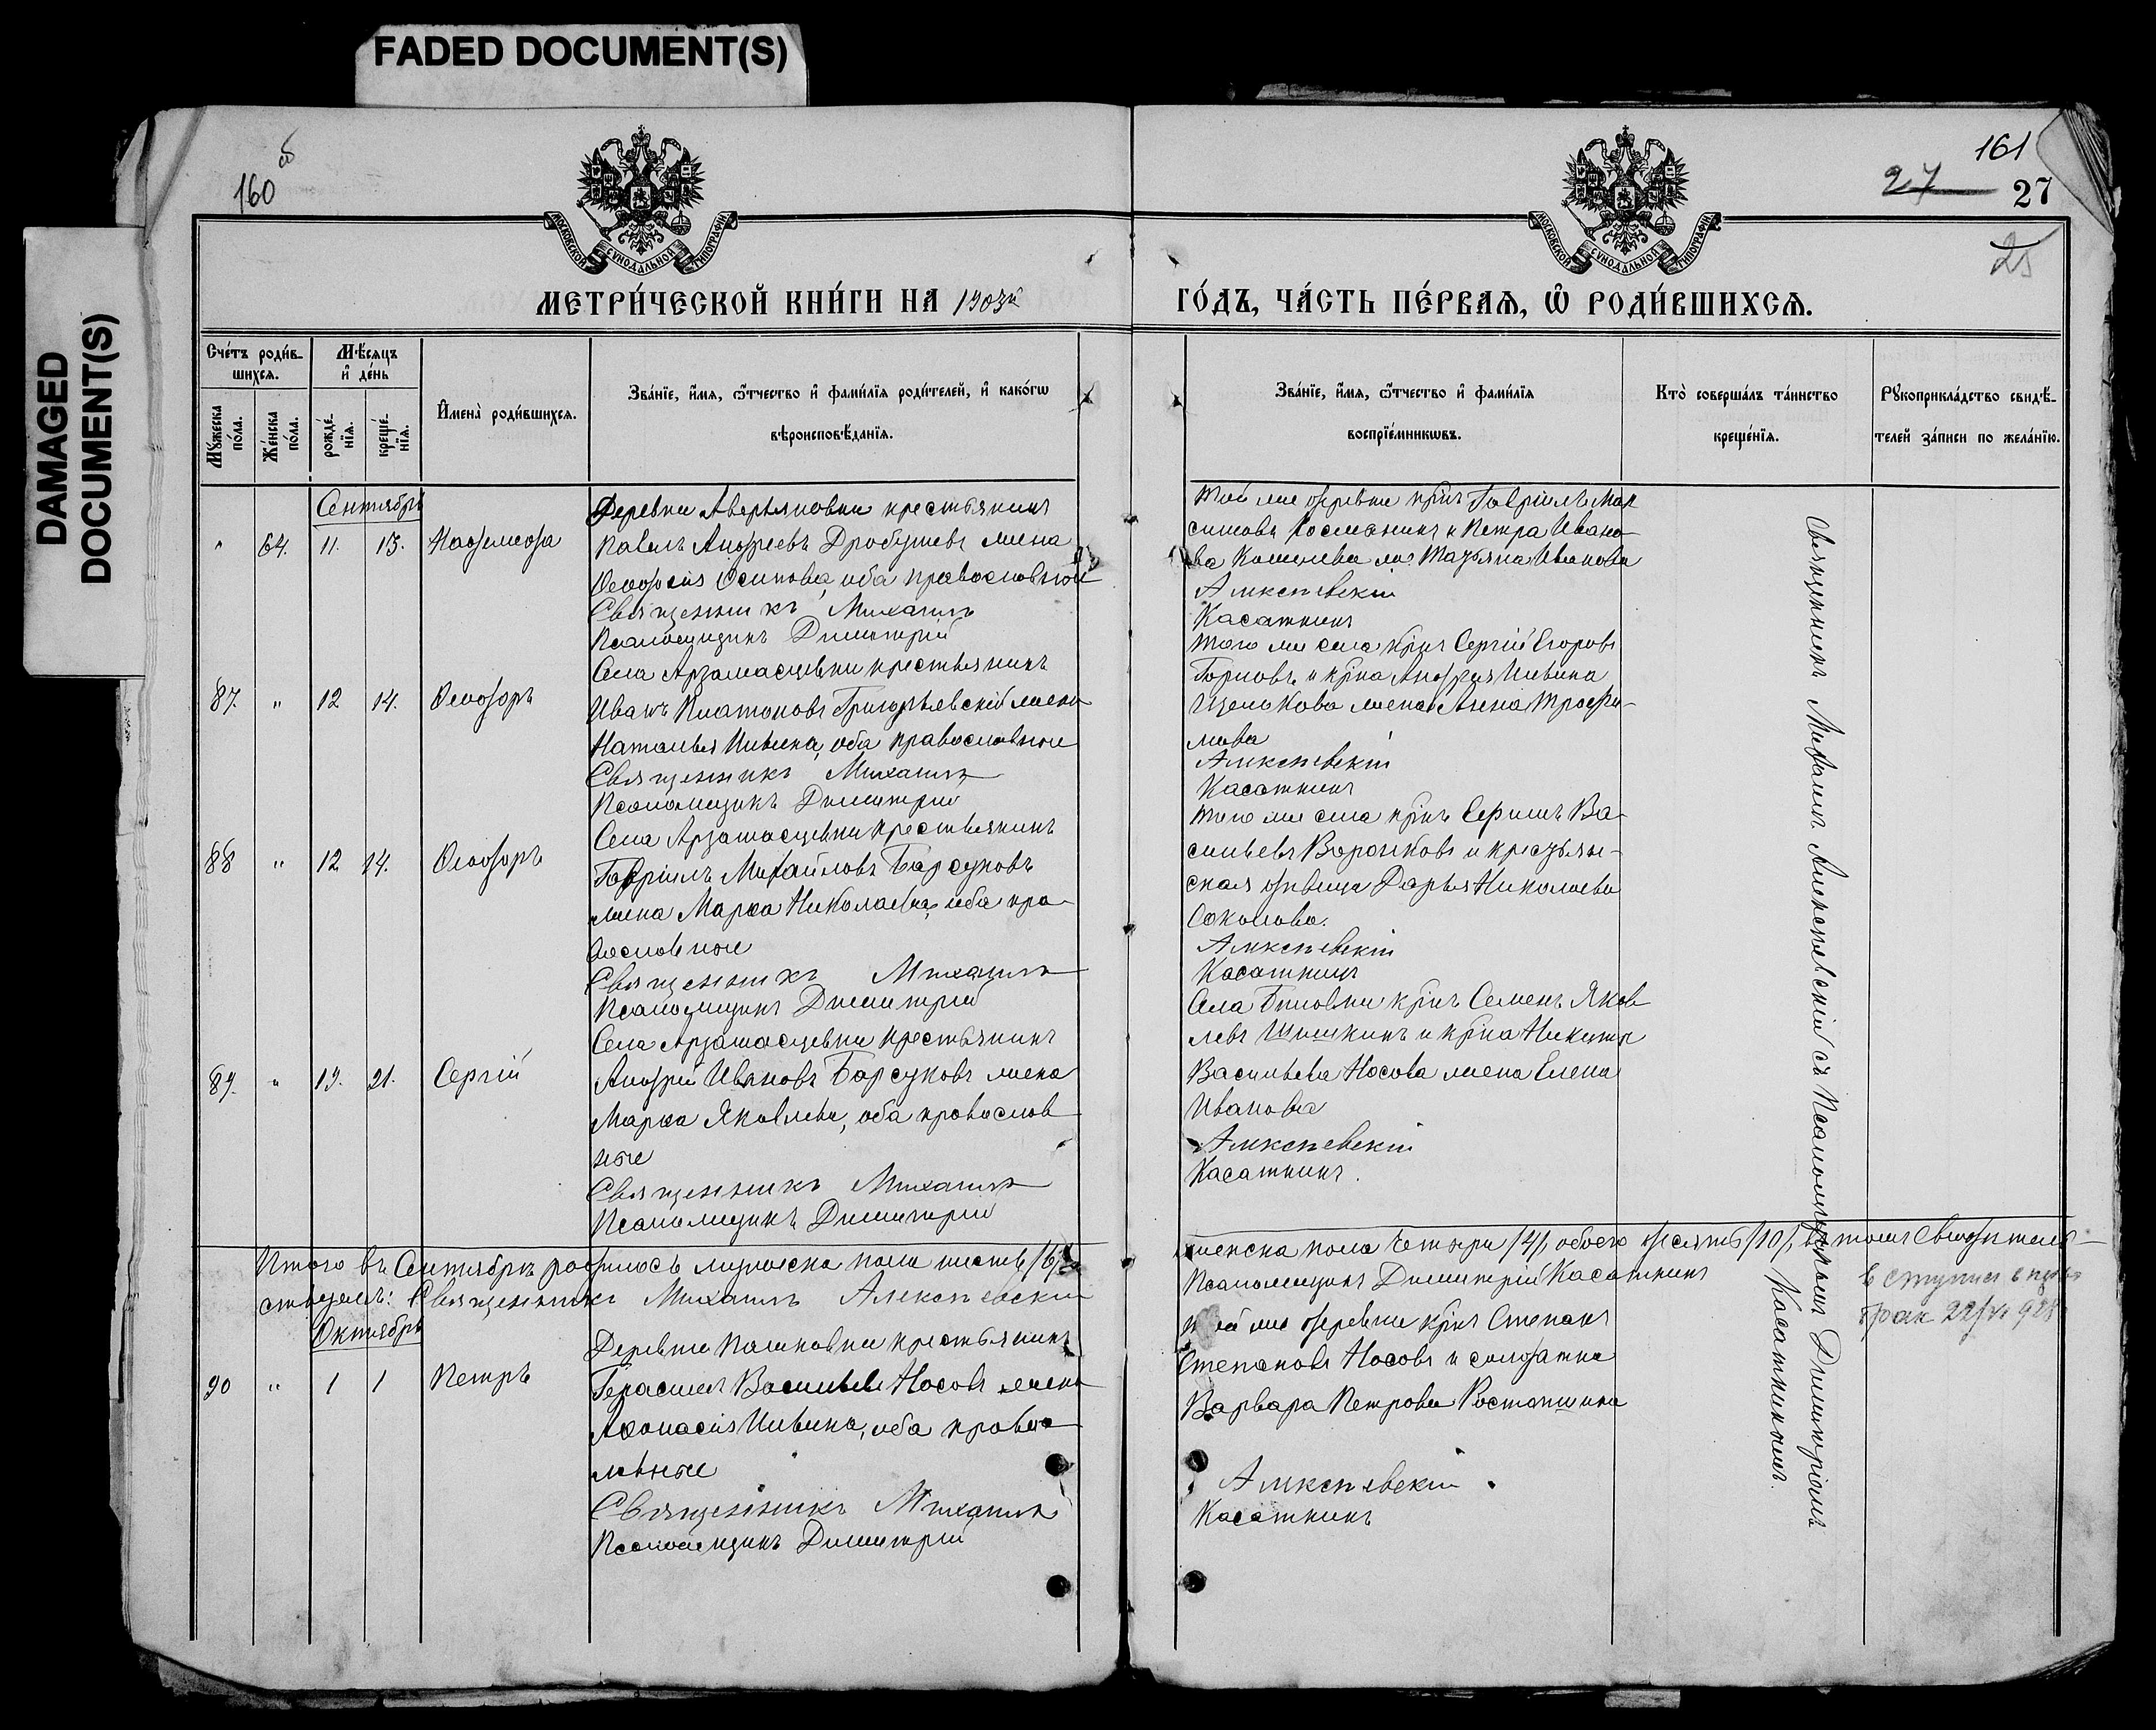 FADED DOCUMENT(S)
DAMAGED
DOCUMENT(S)
160 об
161
27
27
25
МОСКОВСКОЙ СѴНОДАЛЬНОЙ ТИПОГРАФІИ
МОСКОВСКОЙ СѴНОДАЛЬНОЙ ТИПОГРАФІИ
МЕТРИ́ЧЕСКОЙ КНИ́ГИ НА 1903й
ГО́ДЪ, ЧА́СТЬ ПЕ́РВАѦ, Ѡ҆ РОДИ́ВШИХСѦ.
Сче́тъ роди́в-
шихсѧ.
Мꙋ́жеска
по́ла.
Же́нска
по́ла.
Мѣ́сѧцъ
и҆ де́нь
рожде́-
нїѧ.
креще́-
нїѧ.
И҆мена̀ роди́вшихсѧ.
Зва́нїе, и҆́мѧ, ѻ҆́тчество и҆ фами́лїѧ роди́телей, и҆ како́гѡ
вѣроисповѣ́данїѧ.
Зва́нїе, и҆́мѧ, ѻ҆́тчество и҆ фами́лїѧ
воспрїе́мникѡвъ.
Кто̀ соверша́лъ та́инство
креще́нїѧ.
Рꙋкоприкла́дство свидѣ́-
телей за́писи по жела́нїю.
Сентябрь
" 64. 11. 13. Надежда
Деревни Аверьяновки крестьянинъ
Павелъ Андреевъ Дробушевъ жена
Ѳеодосія Осипова, оба православные
Священникъ Михаилъ
Псаломщикъ Димитрій
той же деревни крнъ Гавріилъ Мак
симовъ Косманинъ и Петра Ивано-
ва Кошелева жена Татьяна Иванова
Алексѣевскій
Касаткинъ
87. " 12 14. Ѳеодоръ
Села Арзамасцевки крестьянинъ
Иванъ Платоновъ Григорьевскій жена
Наталья Ивлина, оба православные
Священникъ Михаилъ
Псаломщикъ Димитрій
того же села крнъ Сергій Егоровъ
Горновъ и крна Андрея Ивлина
Щелокова жена Анна Трофи-
мова
Алексѣевскій
Касаткинъ
88 " 12 14. Ѳеодоръ
Села Арзамасцевки крестьянинъ
Гавріилъ Михайловъ Барсуковъ
жена Марѳа Николаева, оба пра-
вославные
Священникъ Михаилъ
Псаломщикъ Димитрій
того же села крнъ Ефимъ Ва-
сильевъ Воронковъ и крестьян-
ская дѣвица Дарья Николаева
Соколова.
Алексѣевскій
Касаткинъ
89. " 19. 21. Сергій
Села Арзамасцевки крестьянинъ
Андрей Ивановъ Барсуковъ жена
Марѳа Яковлева, оба православ
ные
Священникъ Михаилъ
Псаломщикъ Димитрій
Села Бѣловки крнъ Семенъ Яков
левъ Шишкинъ и крна Никиты
Васильева Носова жена Елена
Иванова
Алексѣевскій
Касаткинъ.
Итого въ Сентябрѣ родилось мужеска пола шесть /6/,
женска пола четыре /4/, обоего десять /10/, въ томъ свидѣтель-
ствуемъ: Священникъ Михаилъ Алексѣевскій
Псаломщикъ Димитрій Касаткинъ
Октябрь
90 " 1 1 Петръ
Деревни Пашковки крестьянинъ
Герасимъ Васильевъ Носовъ жена
Аѳонасія Ивлина, оба правос
лавные
Священникъ Михаилъ
Псаломщикъ Димитрій
той же деревни крнъ Степанъ
Степановъ Носовъ и солдатка
Варвара Петрова Ростошина
Алексѣевскій
Касаткинъ
Священникъ Михаилъ Алексѣевскій съ Псаломщикомъ Димитріемъ
Касаткинымъ.
вступил в
брак 22/VI 928